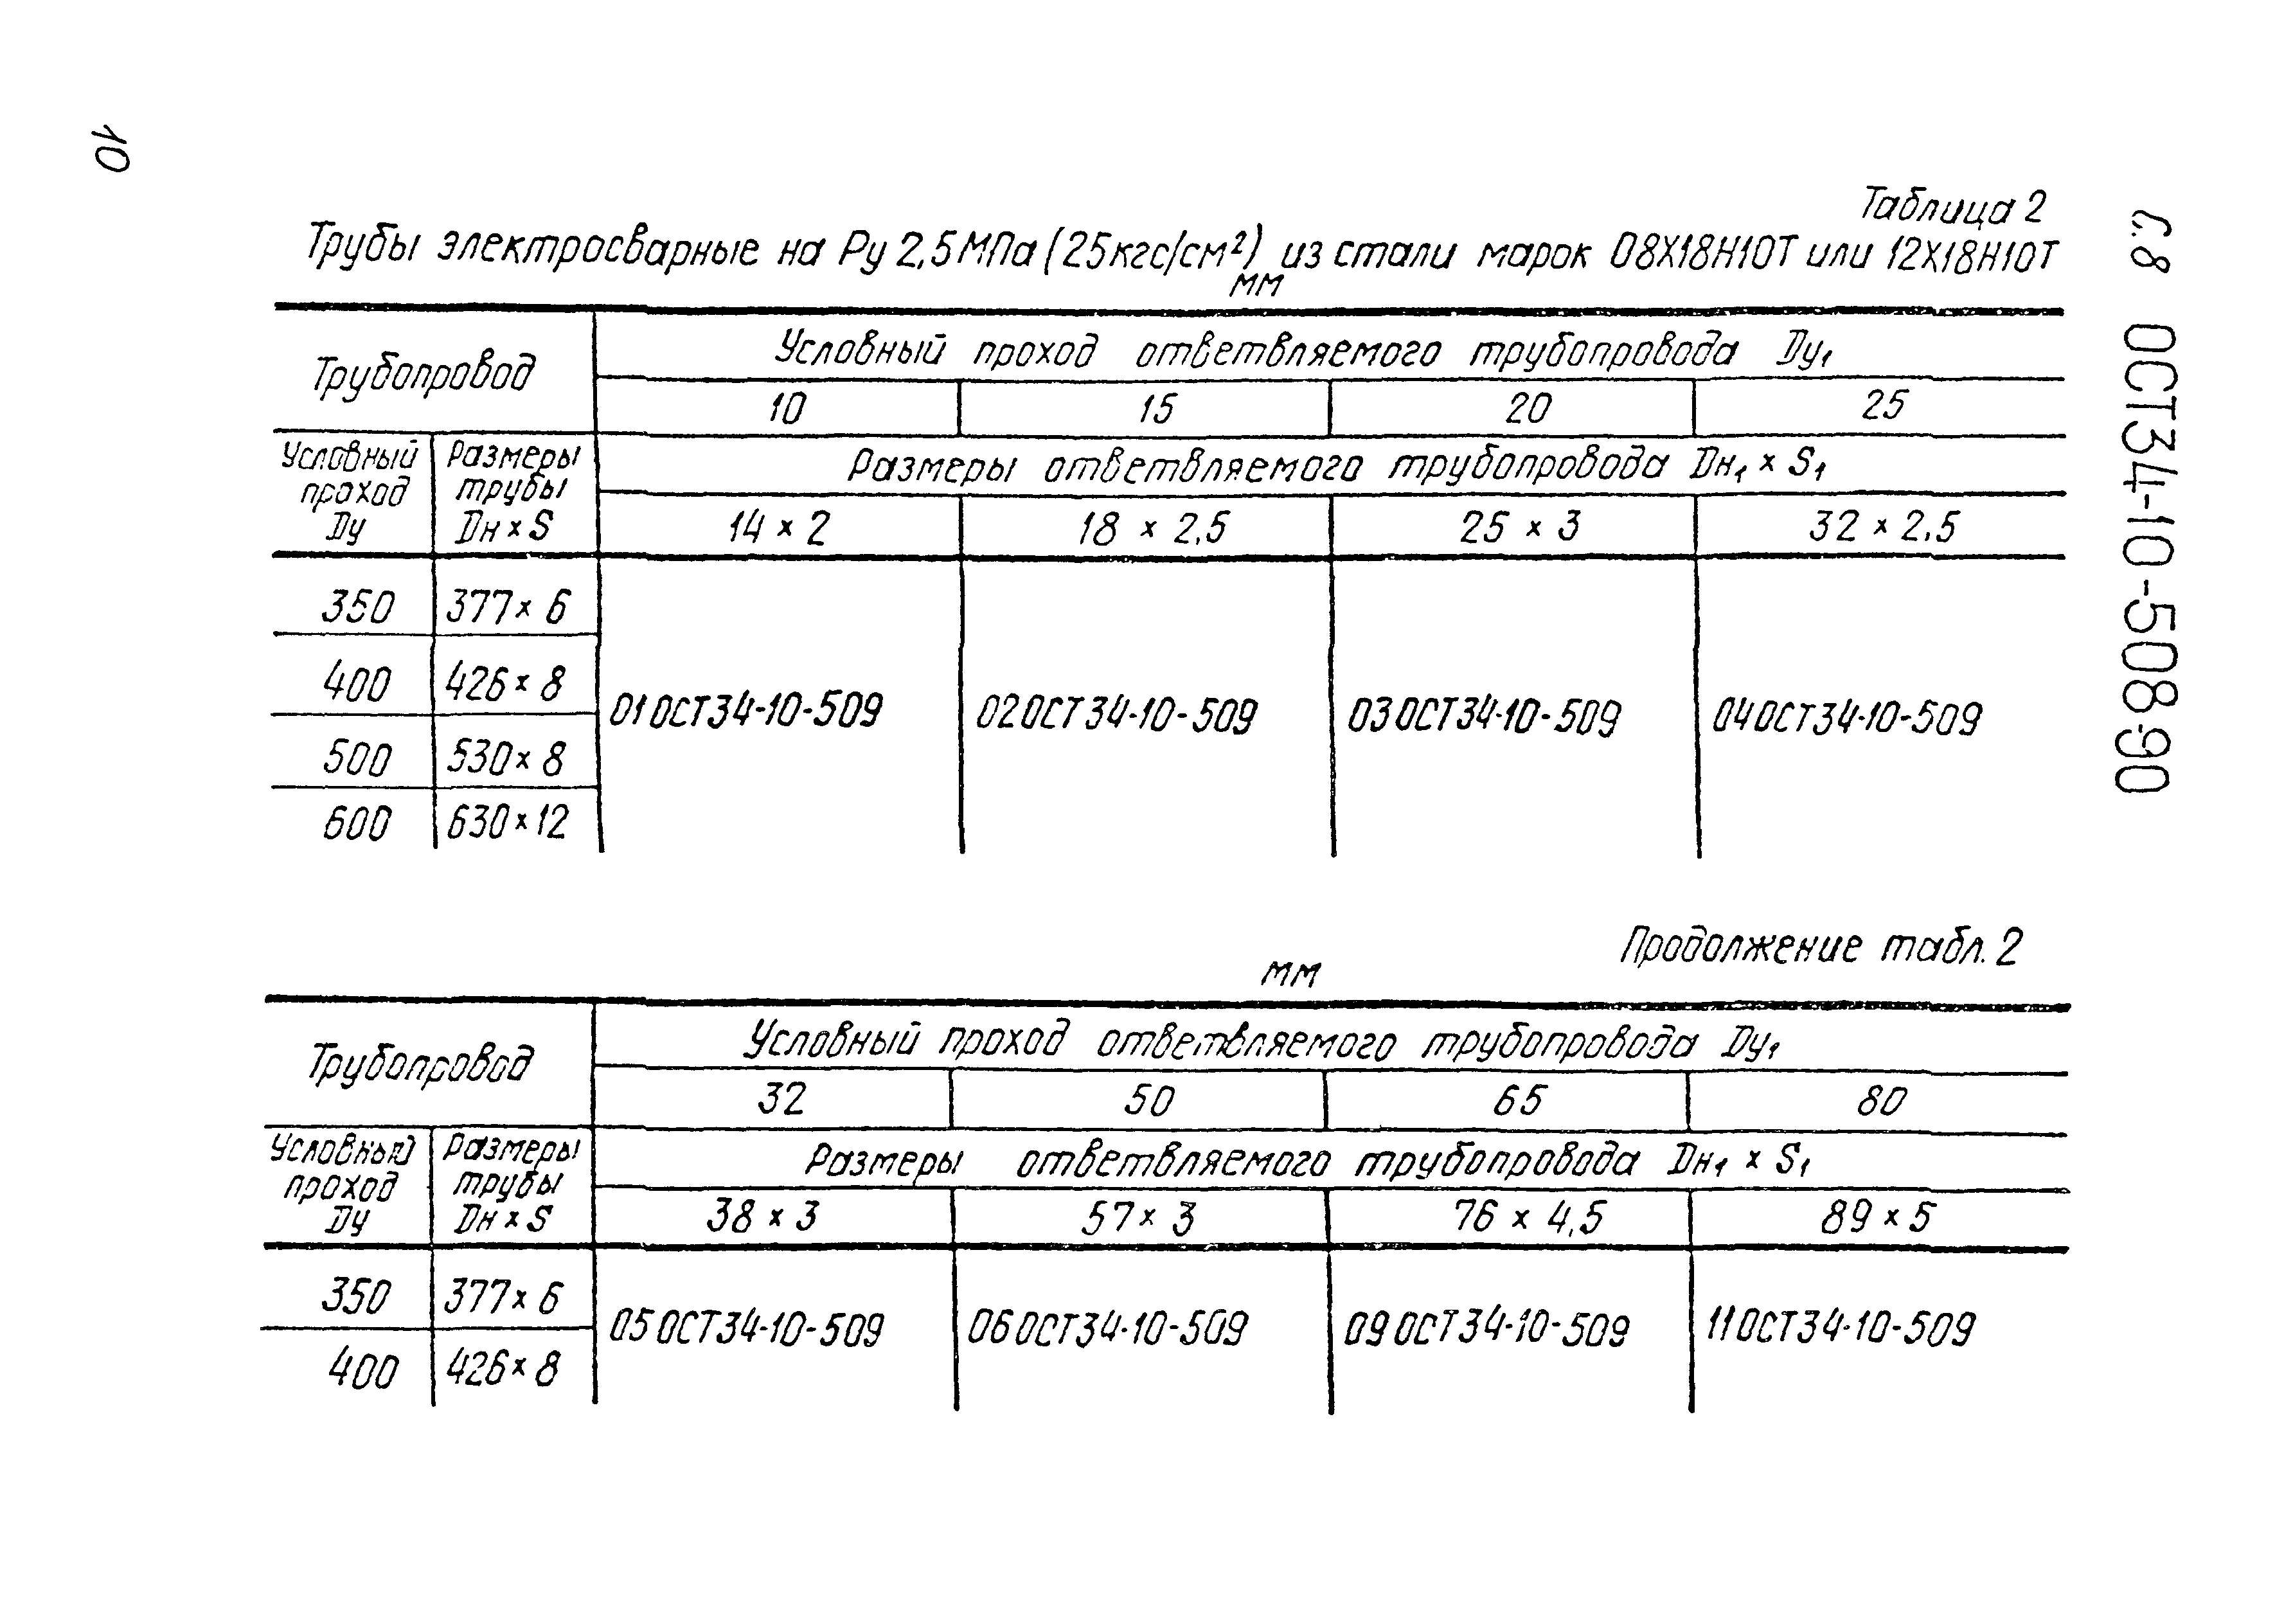 10
С.8 ОСТ34-10-508-90
Таблица 2
Трубы электросварные на Ру 2,5 МПа (25кгс/см²) из стали марок 08Х18Н10Т или 12Х18Н10Т
мм
Трубопровод
Условный проход ответвляемого трубопровода Dу₁
10 15 20 25
Условный проход Dу
Размеры трубы Dн × S
Размеры ответвляемого трубопровода Dн₁ × S₁
14 × 2 18 × 2,5 25 × 3 32 × 2,5
350 377 × 6
400 426 × 8
01 ОСТ34-10-509 02 ОСТ34-10-509 03 ОСТ34-10-509 04 ОСТ34-10-509
500 530 × 8
600 630 × 12
Продолжение табл. 2
мм
Трубопровод
Условный проход ответвляемого трубопровода Dу₁
32 50 65 80
Условный проход Dу
Размеры трубы Dн × S
Размеры ответвляемого трубопровода Dн₁ × S₁
38 × 3 57 × 3 76 × 4,5 89 × 5
350 377 × 6
05 ОСТ34-10-509 06 ОСТ34-10-509 09 ОСТ34-10-509 11 ОСТ34-10-509
400 426 × 8